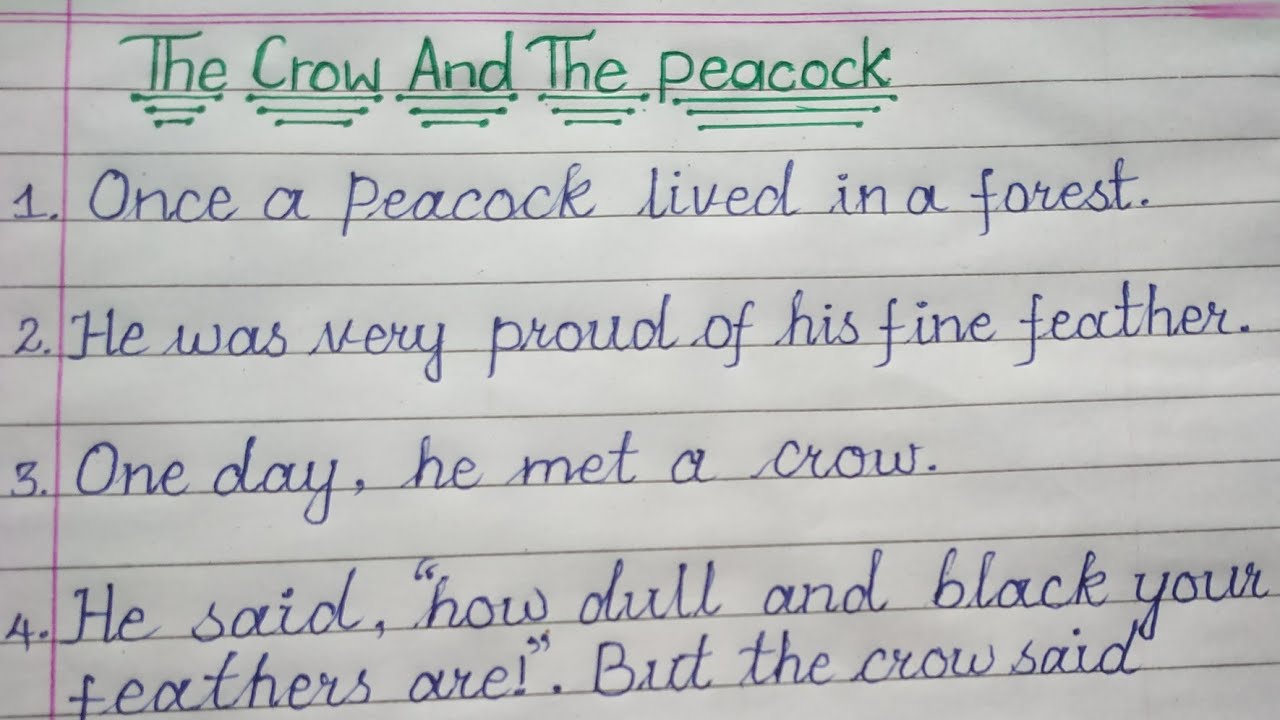 The Crow And The peacock
1. Once a peacock lived in a forest.
2. He was very proud of his fine feather.
3. One day, he met a crow.
4. He said, "how dull and black your
feathers are!". But the crow said